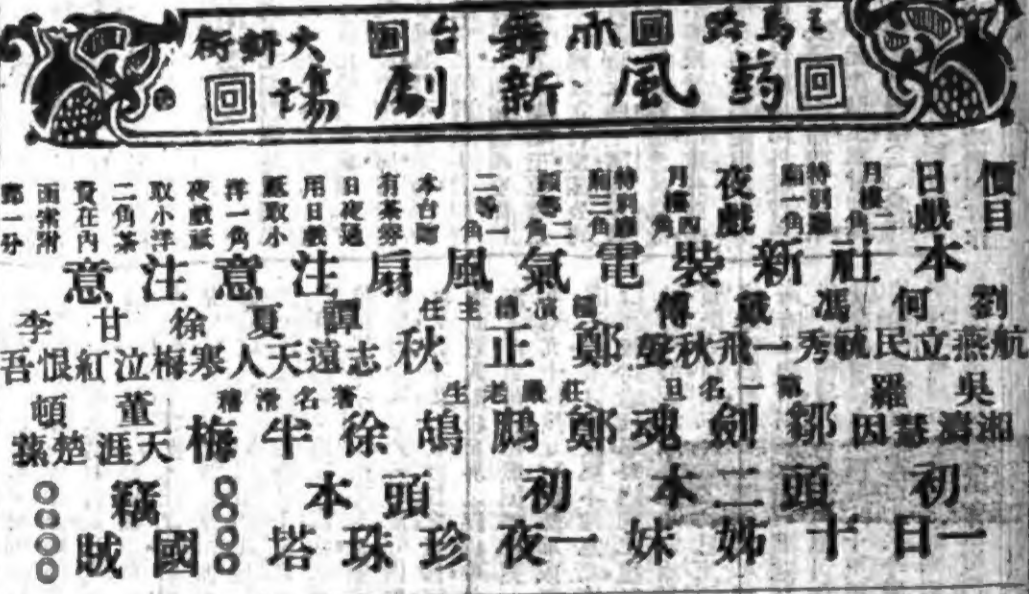 三馬路 亦舞台 大新街
葯風新劇場
價目
日戲
月樓二角
特別廳一角
夜戲
月樓四角
特別廳三角
頭等二角
二等一角
本台
有茶券
日夜通
用日戲
祗取小
洋一角
夜戲祗
取小洋
二角茶
資在內
本社新裝電氣風扇注意注意
劉航燕
何立民
馮毓秀
戴一飛
傅秋聲
編演總主任
鄭正秋
譚志遠
夏天人
徐寒梅
甘泣紅
李恨吾
吳湘濤
羅慧因
第一名旦
鄒劍魂
莊嚴老生
鄭鷓鴣
著名滑稽
徐半梅
董天涯
頓楚
初一日
頭二本
十姊妹
初一夜
頭本
珍珠塔
竊國賊